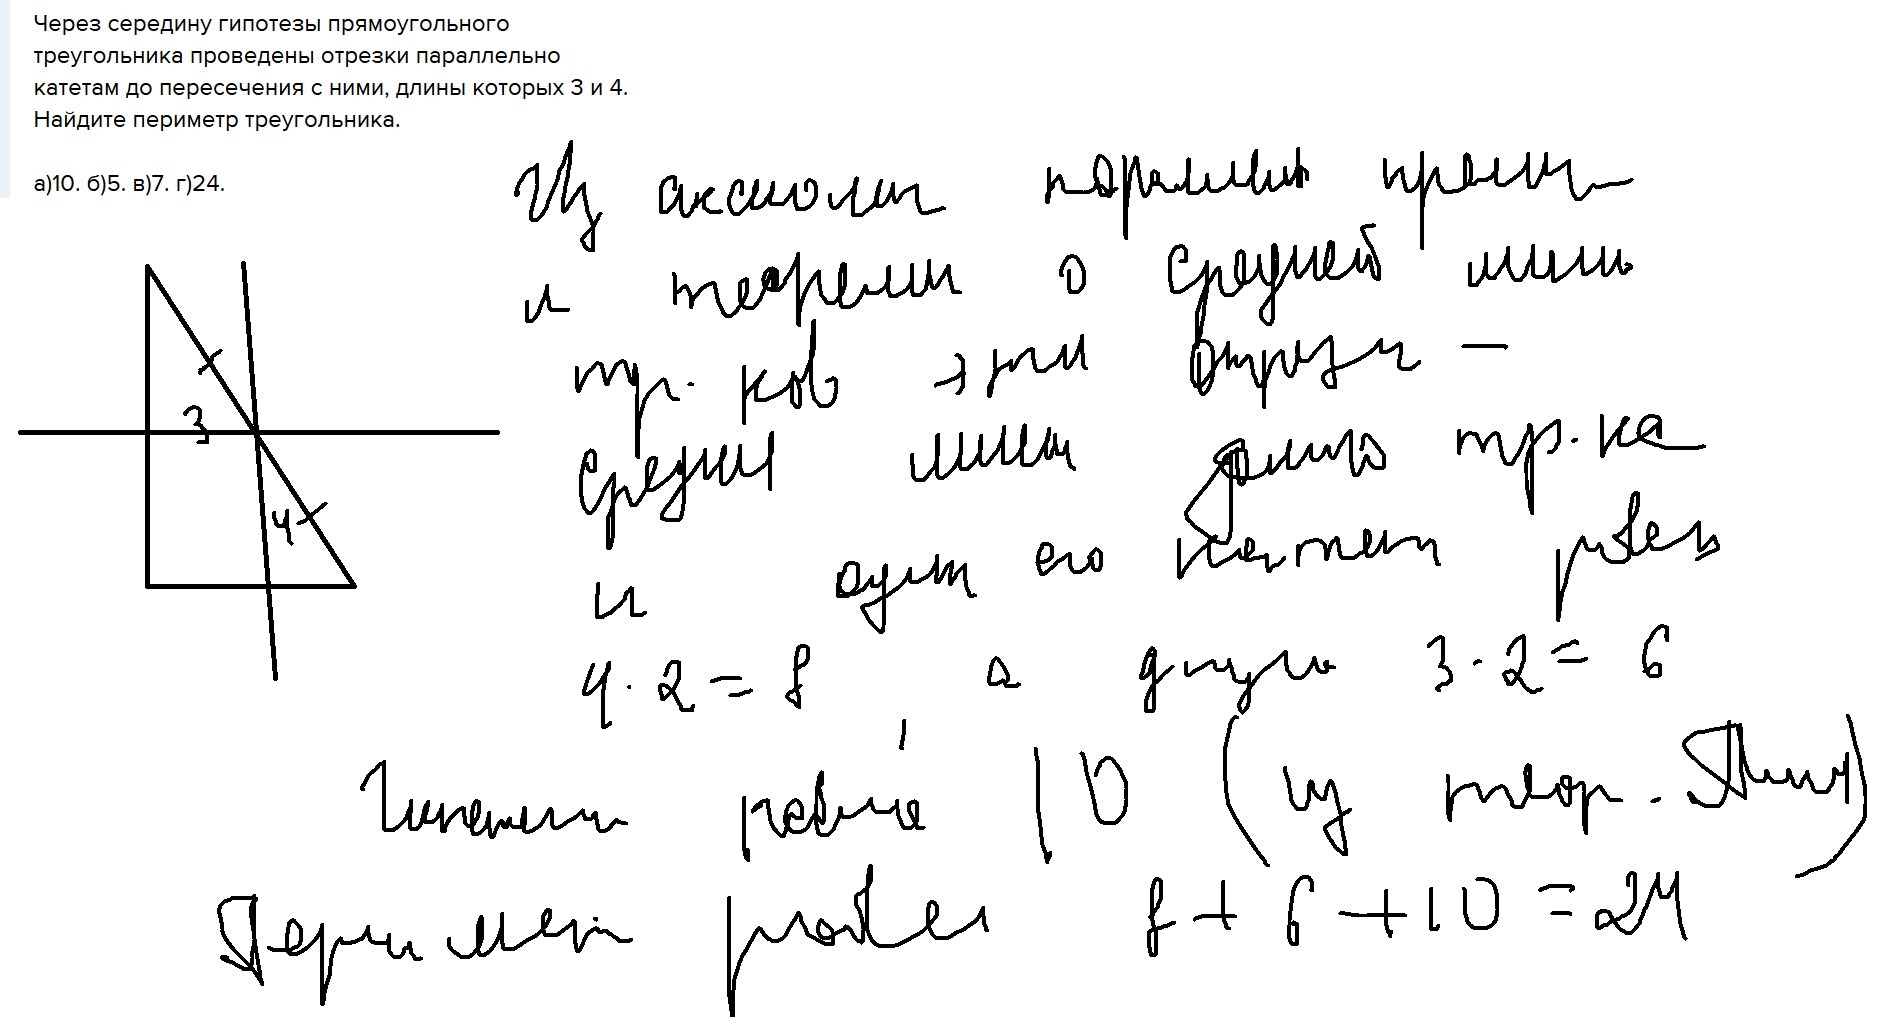 Через середину гипотезы прямоугольного
треугольника проведены отрезки параллельно
катетам до пересечения с ними, длины которых 3 и 4.
Найдите периметр треугольника.
а)10. б)5. в)7. г)24.
Из аксиомы
и теоремы о средней
тр. ков эти
3
средние линии тр.ка
4
и один его катет равен
4·2=8 а другой 3·2=6
равна 10 (из теор.
Периметр равен 8+6+10=24